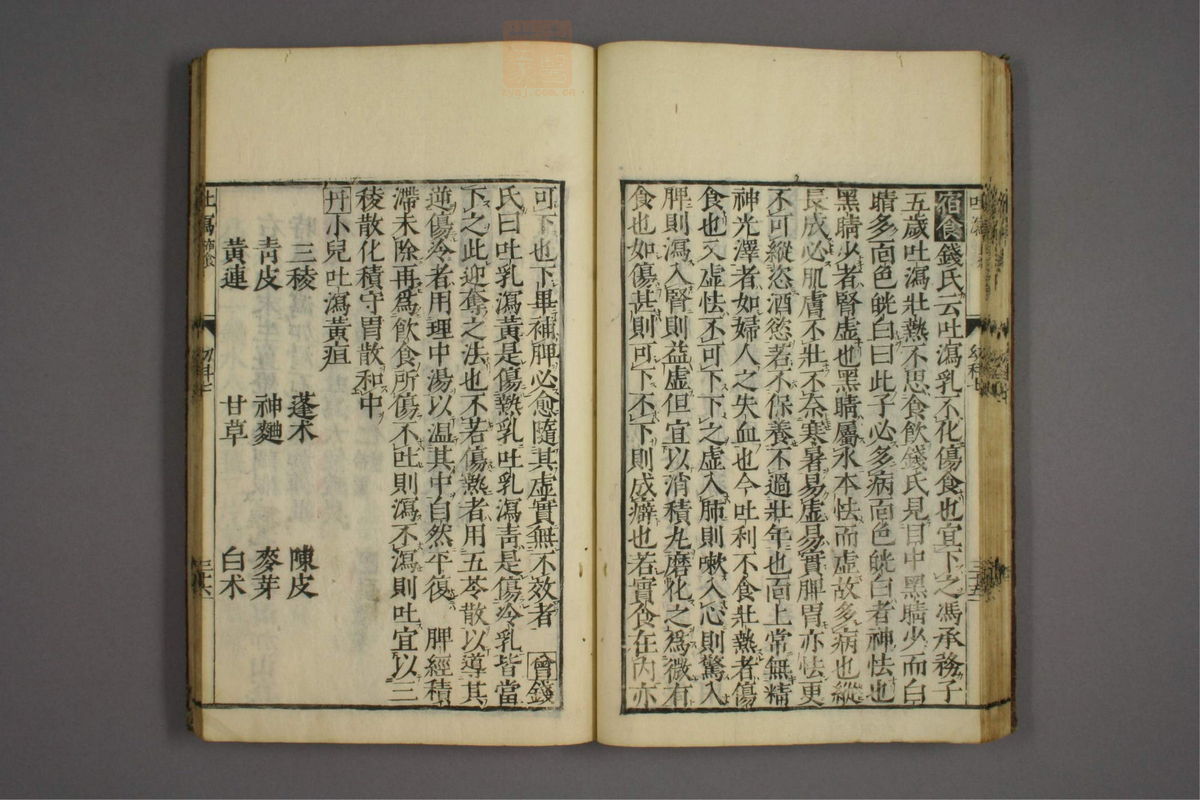 宿食錢氏云吐瀉乳不化傷食也宜下之馮承務子
五歲吐瀉壯熱不思食飲錢氏見目中黑睛少而白
睛多面色㿠白曰此子必多病面色㿠白者神怯也
黑睛少者腎虛也黑睛屬水本怯而虛故多病也縱
長成必肌膚不壯不柰寒暑易虛易實脾胃亦怯更
不可縱恣酒慾若不保養不過壯年也面上常無精
神光澤者如婦人之失血也今吐利不食壯熱者傷
食也又虛怯不可下下之虛入肺則嗽入心則驚入
脾則瀉入腎則益虛但宜以消積丸磨化之爲微有
食也如傷甚則可下不下則成癖也若實食在內亦
可下也下畢補脾必愈隨其虛實無不效者 曾錢
氏曰吐乳瀉黃是傷熱乳吐乳瀉靑是傷冷乳皆當
下之此迎奪之法也不若傷熱者用五苓散以導其
逆傷冷者用理中湯以温其中自然平復 脾經積
滯未除再爲飲食所傷不吐則瀉不瀉則吐宜以三
稜散化積守胃散和中
丹小兒吐瀉黃疸
三稜 蓬朮 陳皮
靑皮 神麯 麥芽
黃連 甘草 白朮
吐瀉